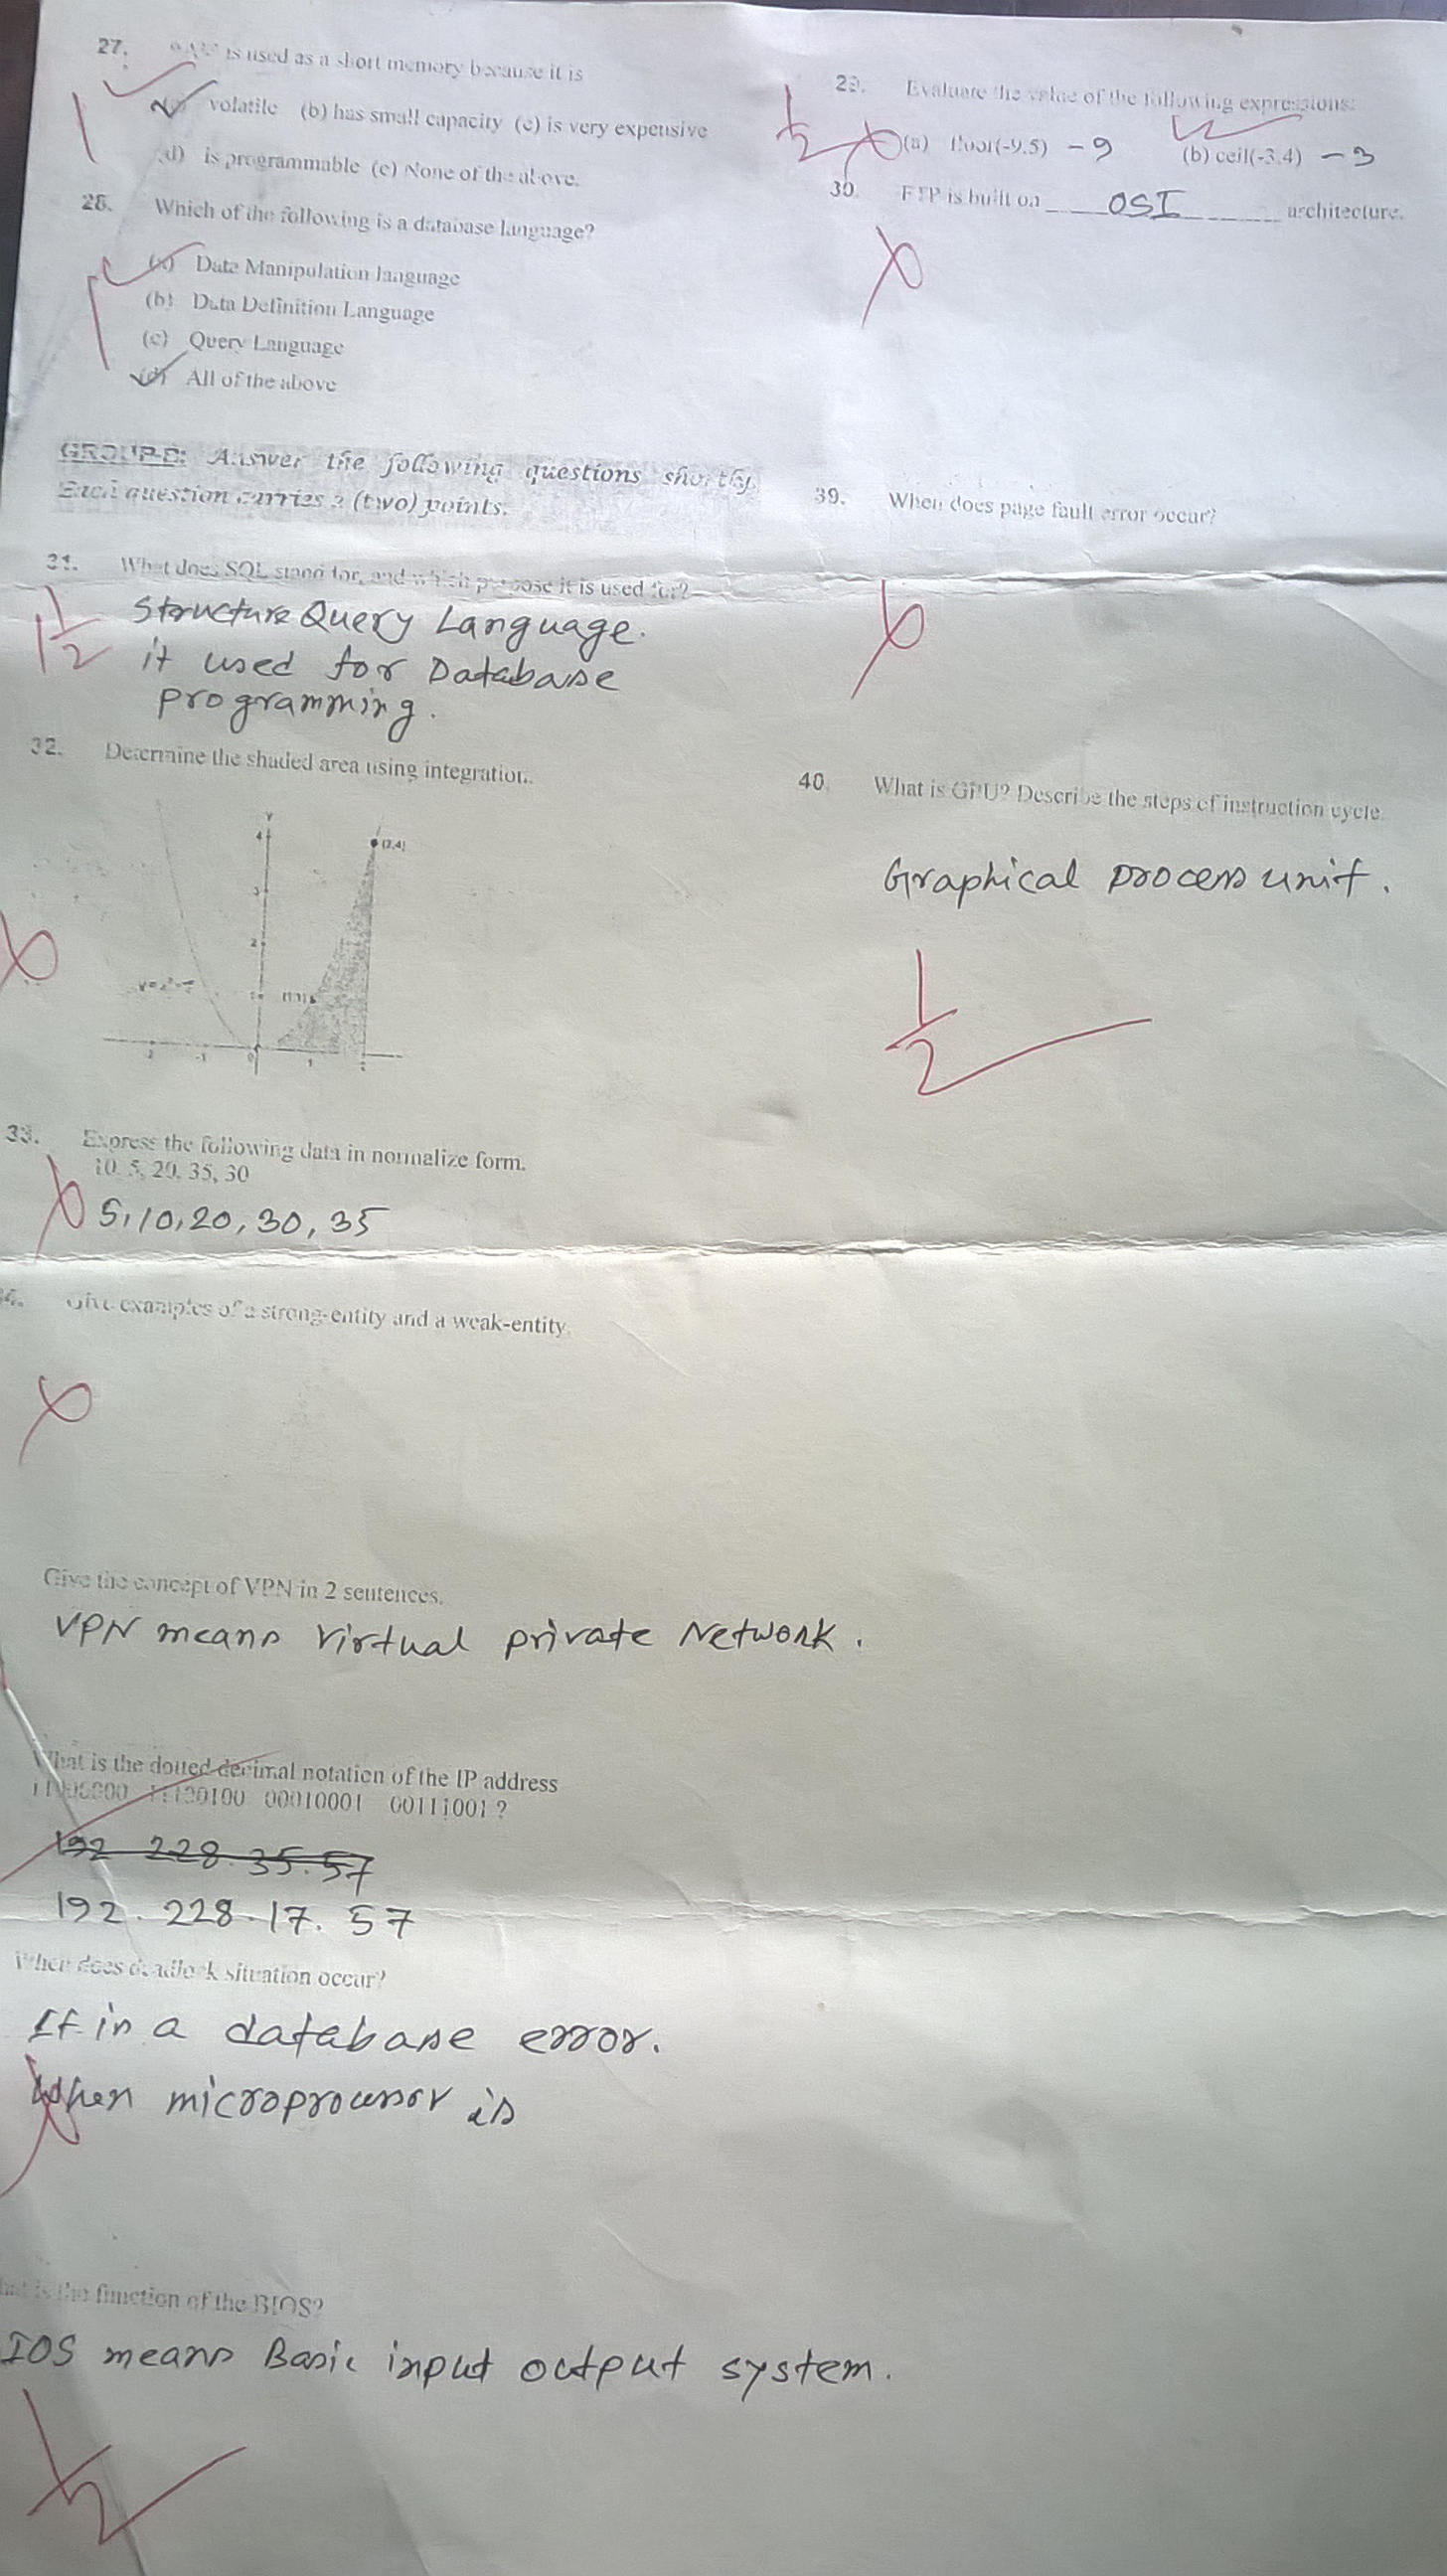 27. is used as a short memory because it is
volatile (b) has small capacity (c) is very expensive
(d) is programmable (e) None of the above.
28. Which of the following is a database language?
(a) Data Manipulation language
(b) Data Definition Language
(c) Query Language
(d) All of the above
1
1
29. Evaluate the value of the following expressions:
(a) floor(-9.5) -9 (b) ceil(-3.4) -3
1/2
30. FTP is built on OSI architecture.
GROUP-B: Answer the following questions shortly.
Each question carries 2 (two) points.
31. What does SQL stand for, and which purpose it is used for?
Structure Query Language.
it used for Database
programming.
1 1/2
32. Determine the shaded area using integration.
y
4
(2,4)
3
2
1
(1,1)
-2 -1 0 1 2
33. Express the following data in normalize form.
10, 5, 20, 35, 30
5,10,20,30,35
34. Give examples of a strong-entity and a weak-entity.
Give the concept of VPN in 2 sentences.
VPN means virtual private Network.
What is the dotted decimal notation of the IP address
11000000 11100100 00010001 00111001 ?
192 228.35.57
192.228.17.57
When does deadlock situation occur?
If in a database error.
When microprocessor is
is the function of the BIOS?
IOS means Basic input output system.
1/2
39. When does page fault error occur?
40. What is GPU? Describe the steps of instruction cycle.
Graphical process unit.
1/2